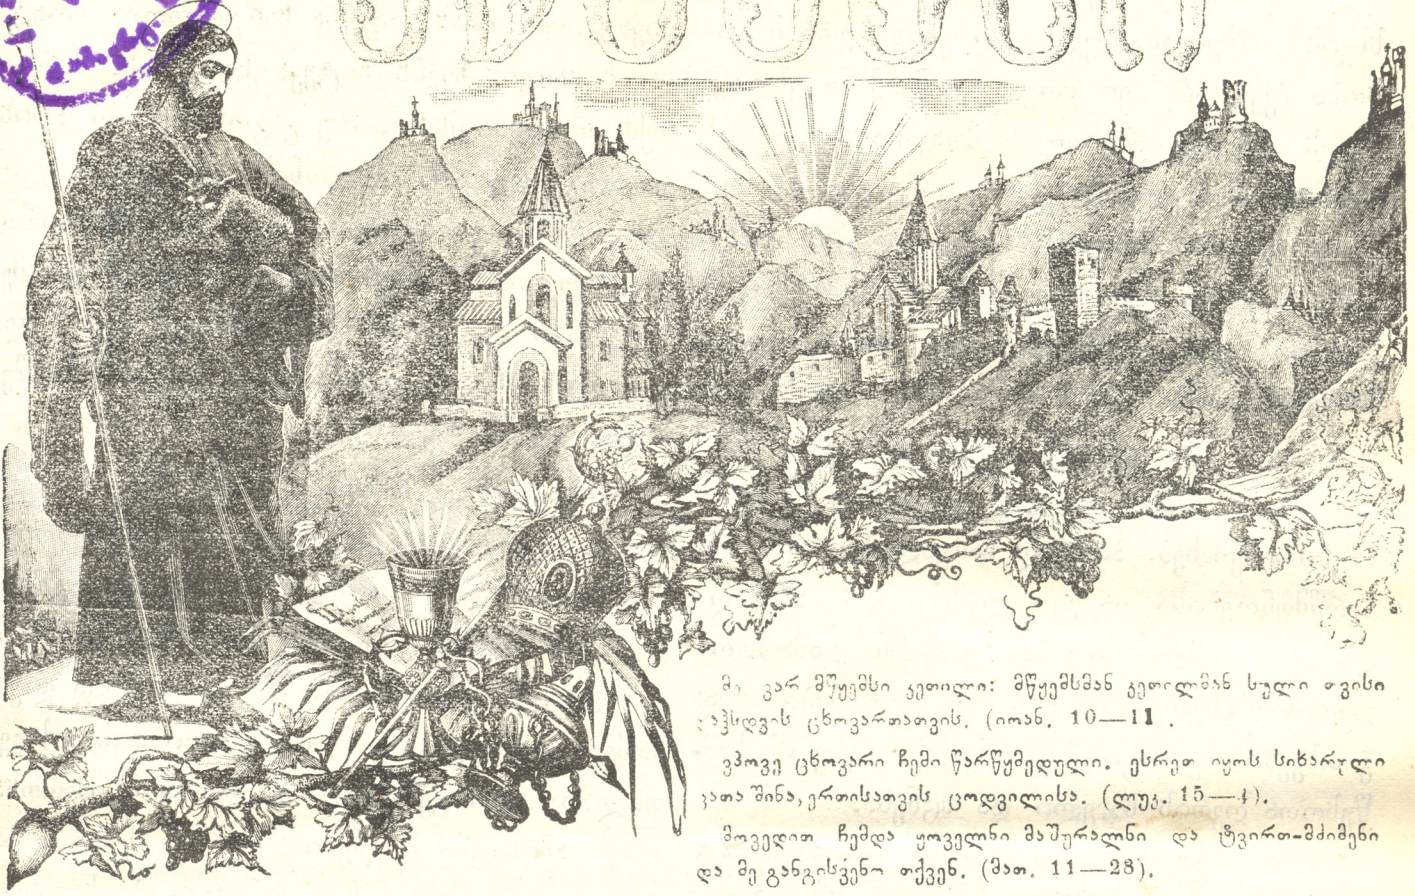 მე ვარ მწყემსი კეთილი: მწყემსმან კეთილმან სული თვისი
დაჰსდვის ცხოვართათვის. (იოან. 10—11 .
ვპოვე ცხოვარი ჩემი წარწყმედული. ესრეთ იყოს სიხარული
ცათა შინა, ერთისათვის ცოდვილისა. (ლუკ. 15—4).
მოვედით ჩემდა ყოველნი მაშურალნი და ტვირთ-მძიმენი
და მე განგისვენო თქვენ. (მათ. 11—28).